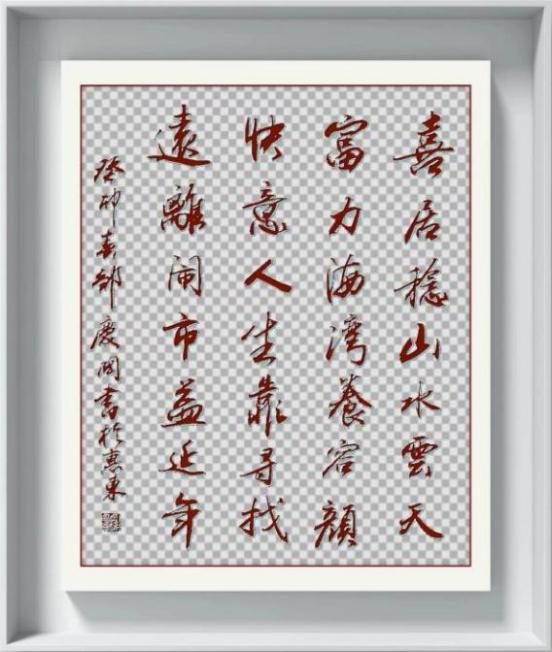 喜居稔山水雲天
富力海灣養容顏
快意人生靠尋找
遠離鬧市益延年
癸卯春鄒慶國書於惠東